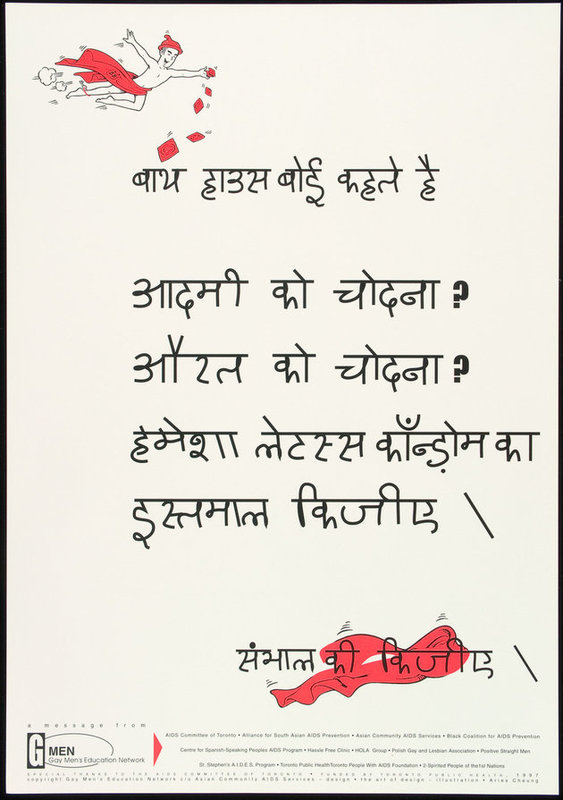 बाथ हाउस बोई कहते है
आदमी को चोदना ?
औरत को चोदना ?
हमेशा लेटस्स कॉंन्ड़ोम का
इस्तमाल किजीए \
संभाल की किजीए \
a message from
G MEN
Gay Men's Education Network
AIDS Committee of Toronto • Alliance for South Asian AIDS Prevention • Asian Community AIDS Services • Black Coalition for AIDS Prevention
Centre for Spanish-Speaking Peoples AIDS Program • Hassle Free Clinic • HOLA Group • Polish Gay and Lesbian Association • Positive Straight Men
St. Stephen's A.I.D.E.S. Program • Toronto Public Health Toronto People With AIDS Foundation • 2-Spirited People of the 1st Nations
SPECIAL THANKS TO THE AIDS COMMITTEE OF TORONTO • FUNDED BY TORONTO PUBLIC HEALTH, 1997
copyright Gay Men's Education Network c/o Asian Community AIDS Services • design • the art of design • illustration • Aries Cheung